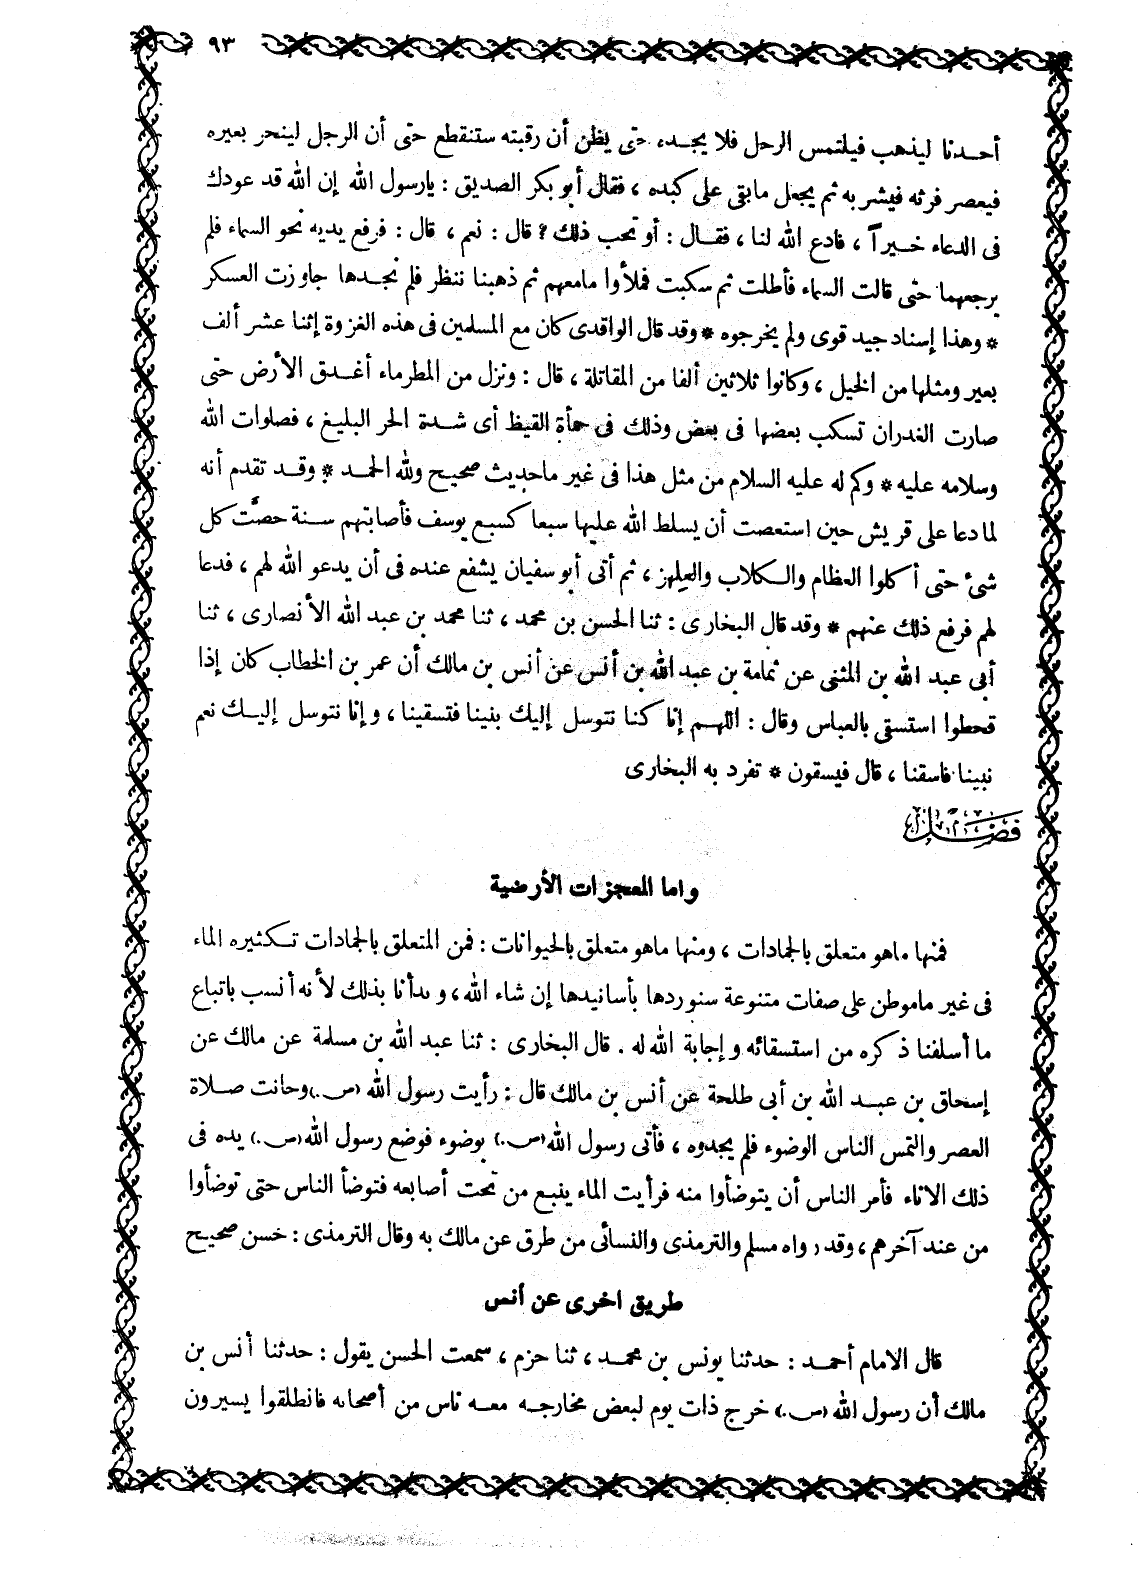 ٩٣
أحدنا ليذهب فيلتمس الرحل فلا يجده حتى يظن أن رقبته ستنقطع حتى أن الرجل لينحر بعيره
فيعصر فرثه فيشربه ثم يجعل مابقى على كبده ، فقال أبو بكر الصديق : يارسول الله إن الله قد عودك
فى الدعاء خيراً ، فادع الله لنا ، فقال : أو تحب ذلك ? قال : نعم ، قال : فرفع يديه نحو السماء فلم
يرجعهما حتى قالت السماء فأطلت ثم سكبت فملأوا مامعهم ثم ذهبنا ننظر فلم نجدها جاوزت العسكر
* وهذا إسناد جيد قوى ولم يخرجوه * وقد قال الواقدى كان مع المسلمين فى هذه الغزوة إثنا عشر ألف
بعير ومثلها من الخيل ، وكانوا ثلاثين ألفا من المقاتلة ، قال : ونزل من المطر ماء أغدق الأرض حتى
صارت الغدران تسكب بعضها فى بعض وذلك فى حمأة القيظ أى شدة الحر البليغ ، فصلوات الله
وسلامه عليه * وكم له عليه السلام من مثل هذا فى غير ماحديث صحيح ولله الحمد * وقد تقدم أنه
لما دعا على قريش حين استعصت أن يسلط الله عليها سبعا كسبع يوسف فأصابتهم سنة حصَّت كل
شئ حتى أكلوا العظام والكلاب والعلهز ، ثم أتى أبو سفيان يشفع عنده فى أن يدعو الله لهم ، فدعا
لهم فرفع ذلك عنهم * وقد قال البخارى : ثنا الحسن بن محمد ، ثنا محمد بن عبد الله الأنصارى ، ثنا
أبى عبد الله بن المثنى عن ثمامة بن عبد الله بن أنس عن أنس بن مالك أن عمر بن الخطاب كان إذا
قحطوا استسقى بالعباس وقال : اللهم إنا كنا نتوسل إليك بنبينا فتسقينا ، وإنا نتوسل إليك نعم
نبينا فاسقنا ، قال فيسقون * تفرد به البخارى
فصل
واما المعجزات الأرضية
فمنها ماهو متعلق بالجمادات ، ومنها ماهو متعلق بالحيوانات : فمن المتعلق بالجمادات تكثيره الماء
فى غير ماموطن على صفات متنوعة سنوردها بأسانيدها إن شاء الله ، وبدأنا بذلك لأنه أنسب باتباع
ما أسلفنا ذكره من استسقائه وإجابة الله له . قال البخارى : ثنا عبد الله بن مسلمة عن مالك عن
إسحاق بن عبد الله بن أبى طلحة عن أنس بن مالك قال : رأيت رسول الله (ص.) وحانت صلاة
العصر والتمس الناس الوضوء فلم يجدوه ، فأتى رسول الله (ص.) بوضوء فوضع رسول الله (ص.) يده فى
ذلك الاناء فأمر الناس أن يتوضأوا منه فرأيت الماء ينبع من تحت أصابعه فتوضأ الناس حتى توضأوا
من عند آخرهم ، وقد رواه مسلم والترمذى والنسائى من طرق عن مالك به وقال الترمذى : حسن صحيح
طريق اخرى عن أنس
قال الامام أحمد : حدثنا يونس بن محمد ، ثنا حزم ، سمعت الحسن يقول : حدثنا أنس بن
مالك أن رسول الله (ص.) خرج ذات يوم لبعض مخارجه معه ناس من أصحابه فانطلقوا يسيرون